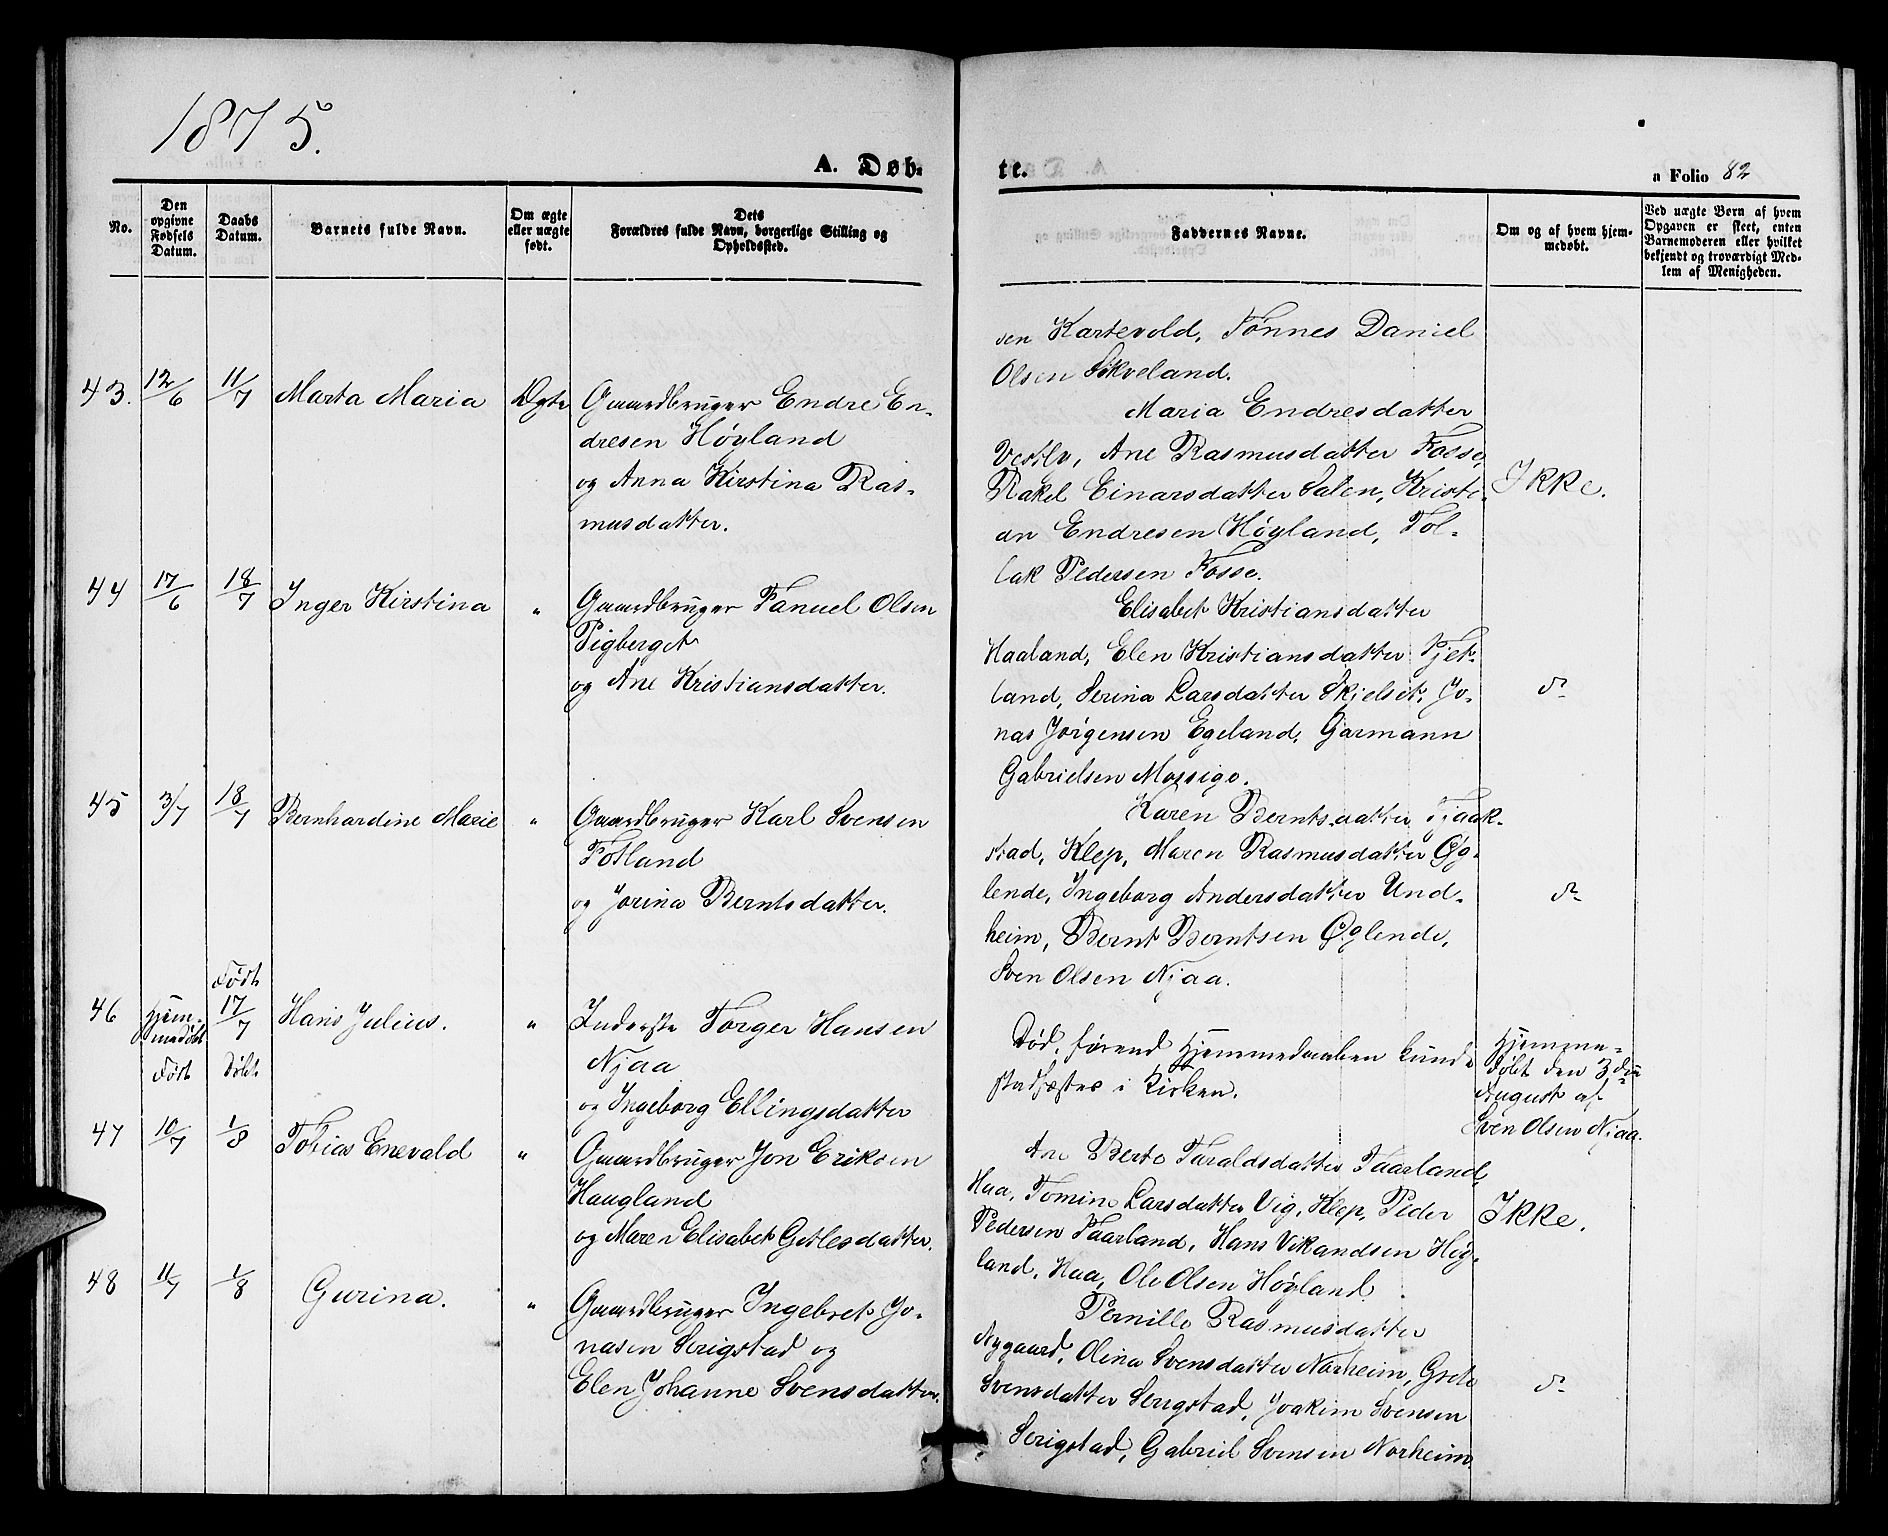 1875.
A. Døb-
te.
a Folio 82
No.
Den opgivne Fødsels Datum.
Daabs Datum.
Barnets fulde Navn.
Om ægte eller uægte født.
Dets Forældres fulde Navn, borgerlige Stilling og Opholdssted.
Faddernes Navne.
Om og af hvem hjemmedøbt.
Ved uægte Børn af hvem Opgaven er skeet, enten Barnemoderen eller hvilket bekjendt og troværdigt Medlem af Menigheden.
sen Kartevold, Tønnes Daniel
Olsen Skveland.
43. 12/6 11/7 Marta Maria Ægte Gaardbruger Endre En-
dresen Høyland
og Anna Kirstina Ras-
musdatter.
Maria Endresdatter
Vestly, Ane Rasmusdatter Fosse,
Rakel Einarsdatter Salen, Kristi-
an Endresen Høyland, Tol-
lak Pedersen Fosse.
Ikke.
44 17/6 18/7 Inger Kirstina " Gaardbruger Fanuel Olsen
Pigberget
og Ane Kristiansdatter.
Elisabet Kristiansdatter
Haaland, Elen Kristiansdatter Fjet-
land, Serina Larsdatter Skjelset, Jo-
nas Jørgensen Egeland, Garmann
Gabrielsen Mossige.
d-
45 3/7 18/7 Bernhardine Marie " Gaardbruger Karl Svensen
Fotland
og Jorina Berntsdatter.
Karen Berntsdatter Tjaak-
stad, Klep, Maren Rasmusdatter Øg-
lende, Ingeborg Andersdatter Und-
heim, Bernt Berntsen Øglende,
Sven Olsen Njaa.
d-
46 Hjem-
medøbt
Født
17/7 Hans Julius. " Inderste Torger Hansen
Njaa
og Ingeborg Ellingsdatter
Død, førend Hjemmedaaben kunde
stadfæstes i Kirken.
Hjemme-
døbt den 3die
August af
Sven Olsen Njaa.
Født
Døbt
47 10/7 1/8 Tobias Enevald " Gaardbruger Jon Eriksen
Haugland
og Maren Elisabet Getlesdatter.
Ane Berte Taraldsdatter Taarland,
Haa, Tomine Larsdatter Vig, Klep, Peder
Pedersen Taarland, Hans Vikandsen Høy-
land, Haa, Ole Olsen Høyland.
Ikke.
48 11/7 1/8 Gurina. " Gaardbruger Ingebret Jo-
nasen Serigstad og
Elen Johanne Svensdatter.
Pernille Rasmusdatter
Nygaard, Olina Svensdatter Norheim, Grete
Svensdatter Serigstad, Joakim Svensen
Serigstad, Gabriel Svensen Norheim
d-